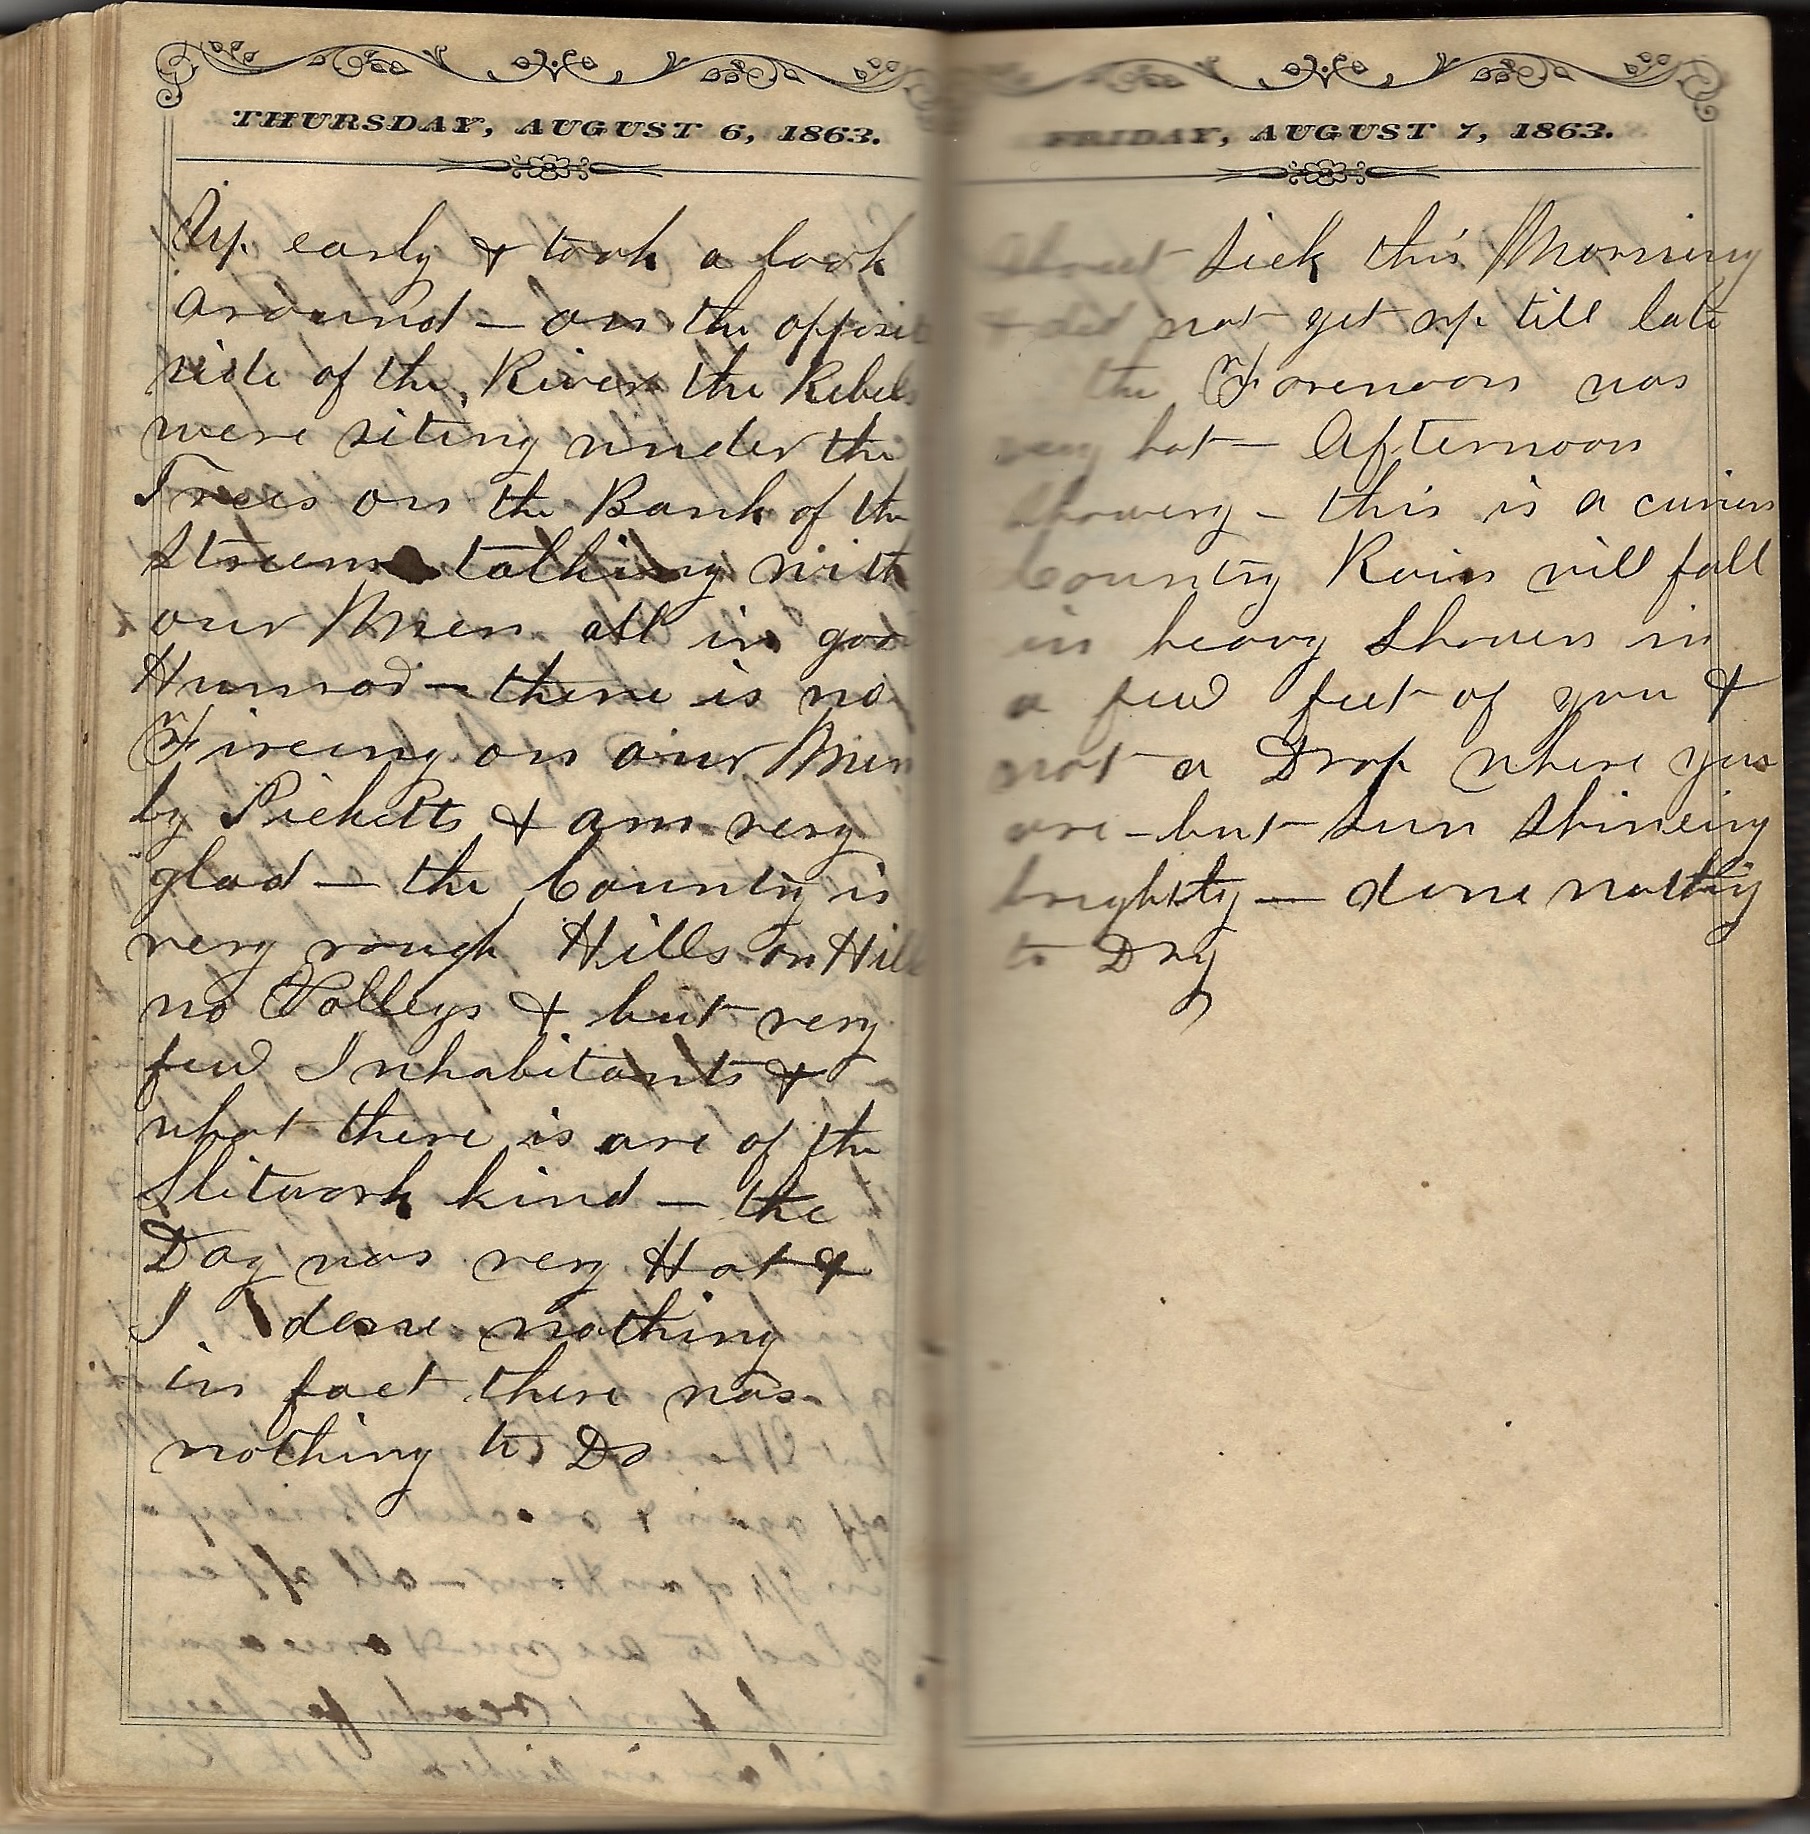 THURSDAY, AUGUST 6, 1863.
Up early & took a look
around — on the opposit
side of the River the Rebels
were siting under the
Trees on the Bank of the
Stream talking with
our Men all in goo
Humor — there is no
Fireing on our Men
by Picketts & am very
glad — the Country is
very rough Hills on Hills
no Valleys & but very
few Inhabitants &
what there is are of the
kind — the
Day was very Hot &
I done nothing
in fact there was
nothing to Do
FRIDAY, AUGUST 7, 1863.
sick this Morning
& did not get up till late
the Forenoon was
very hot — Afternoon
Showery — this is a curious
Country Rain will fall
in heavy Showers in
a few feet of you &
not a Drop where you
are — but Sun Shineing
brightly — done nothing
to Day